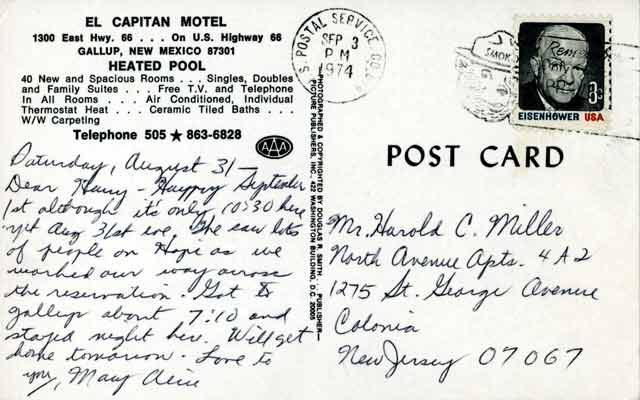 EL CAPITAN MOTEL
1300 East Hwy. 66 . . . On U.S. Highway 66
GALLUP, NEW MEXICO 87301
HEATED POOL
40 New and Spacious Rooms . . . Singles, Doubles
and Family Suites . . . Free T.V. and Telephone
In All Rooms . . . Air Conditioned, Individual
Thermostat Heat . . . Ceramic Tiled Baths . . .
W/W Carpeting
Telephone 505 ★ 863-6828
AAA
Saturday, August 31—
Dear Harry - Happy September
1st although it's only 10:30 here
yet Aug 31st eve. We saw lots
of people on Hopi as we
worked our way across
the reservation. Got to
Gallup about 7:10 and
stayed night her. Will get
home tomorrow. Love to
you, Mary
PHOTOGRAPHED & COPYRIGHTED BY DOUGLAS R. SMITH PUBLISHER—
PICTURE PUBLISHERS, INC., 422 WASHINGTON BUILDING, D.C. 20005
U.S. POSTAL SERVICE
SEP 3
PM
1974
SMOK
EISENHOWER USA
8c
POST CARD
Mr. Harold C. Miller
North Avenue Apts. 4 A2
1275 St. George Avenue
Colonia
New Jersey 07067